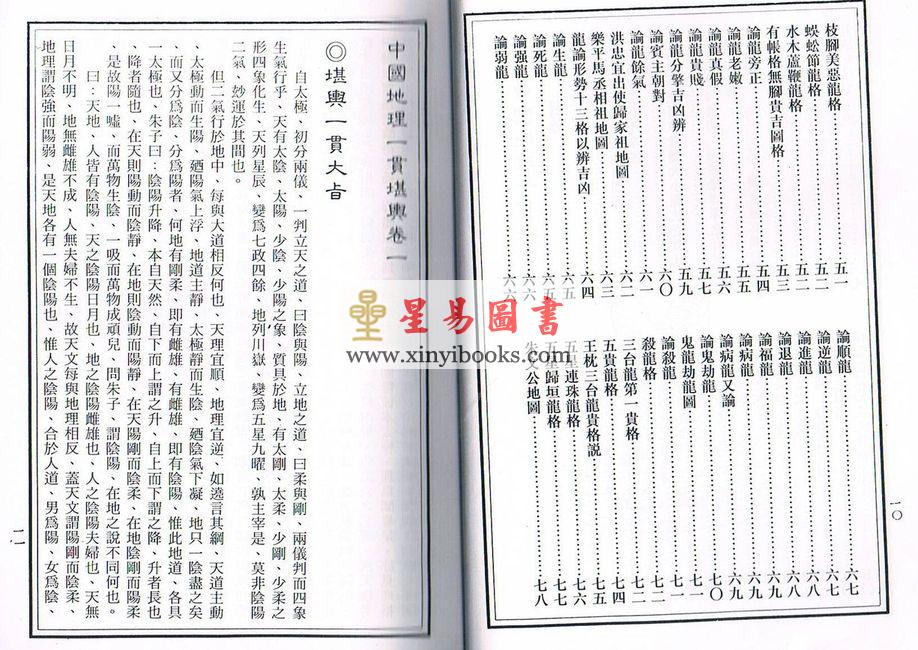 枝腳美惡龍格 五一
蜈蚣節龍格 五二
水木蘆鞭龍格 五二
有帳格無腳貴吉圖格 五三
論龍旁正 五四
論龍老嫩 五五
論龍真假 五六
論龍貴賤 五七
論龍分擘吉凶辨 五九
論龍餘氣 六〇
論賓主朝對 六一
洪忠宜出使歸家祖地圖 六二
樂平馬丞相祖地圖 六三
龍論形勢十三格以辨吉凶 六四
論生龍 六五
論死龍 六五
論強龍 六六
論弱龍 六六
論順龍 六七
論逆龍 六七
論進龍 六八
論退龍 六八
論福龍 六九
論病龍 六九
論病龍又論 六九
論鬼劫龍 七〇
鬼龍劫龍圖 七一
論殺龍 七一
殺龍格 七二
三台龍第一貴格 七四
五貴龍格 七五
王枕三台龍貴格説 七六
五星連珠龍格
五星歸垣龍格 七七
朱文公地圖 七八
一〇
中國地理一貫堪輿卷一
◎堪輿一貫大旨
自太極、初分兩儀、一判立天之道、曰陰與陽、立地之道、曰柔與剛、兩儀判而四象
生氣行乎、天有太陰、太陽、少陰、少陽之象、質具於地、有太剛、太柔、少剛、少柔之
形四象化生、天列星辰、變爲七政四餘、地列川嶽、變爲五星九曜、孰主宰是、莫非陰陽
二氣、妙運於其間也。
但二氣行於地中、每與大道相反何也、天理宜順、地理宜逆、如遶言其綱、天道主動
、太極動而生陽、廼陽氣上浮、地道主靜、太極靜而生陰、廼陰氣下凝、地只一陰盡之矣
、而又分爲陰、分爲陽者、何地有剛柔、即有雌雄、有雌雄、即有陰陽、惟此地道、各具
一太極也、朱子曰：陰陽升降、本自天然、自下而上謂之升、自上而下謂之降、升者長也
、降者隨也、在天則陽動而陰靜、在地則陰動而陽靜、在天陽剛而陰柔、在地陰剛而陽柔
、是故陽一噓、而萬物生陰、一吸而萬物成頑兒、問朱子、謂陰陽、在地之說不同何也。
曰：天地、人皆有陰陽、天之陰陽日月也、地之陰陽雌雄也、人之陰陽夫婦也、天無
日月不明、地無雌雄不成、人無夫婦不生、故天文每與地理相反、蓋天文謂陽剛而陰柔、
地理謂陰強而陽弱、是天地各有一個陰陽也、惟人之陰陽、合於人道、男爲陽、女爲陰、
一一
星易圖書
www.xinyibooks.com